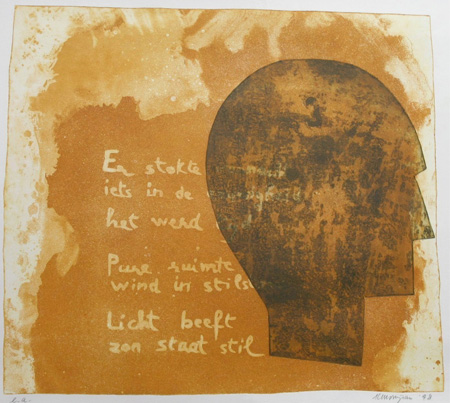 Er stokte
iets in de
het werd
Pure ruimte
wind in stils
Licht beeft
zon staat stil